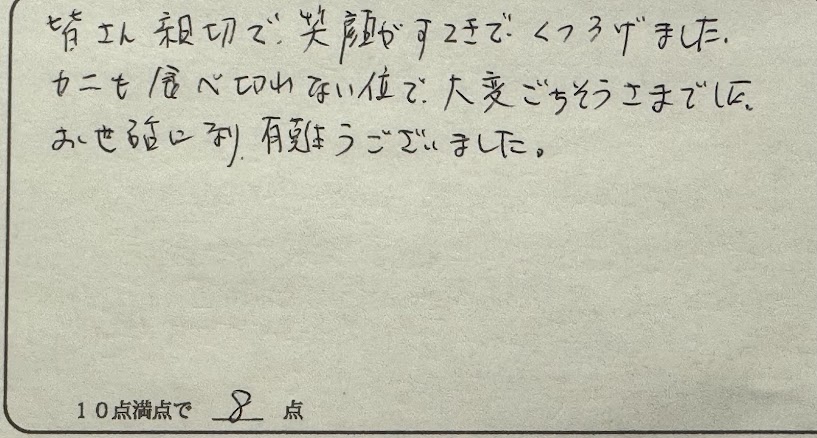 皆さん親切で、笑顔がすてきで、くつろげました。
カニも食べ切れない位で、大変ごちそうさまでした。
お世話になり、有難うございました。
10点満点で 8 点